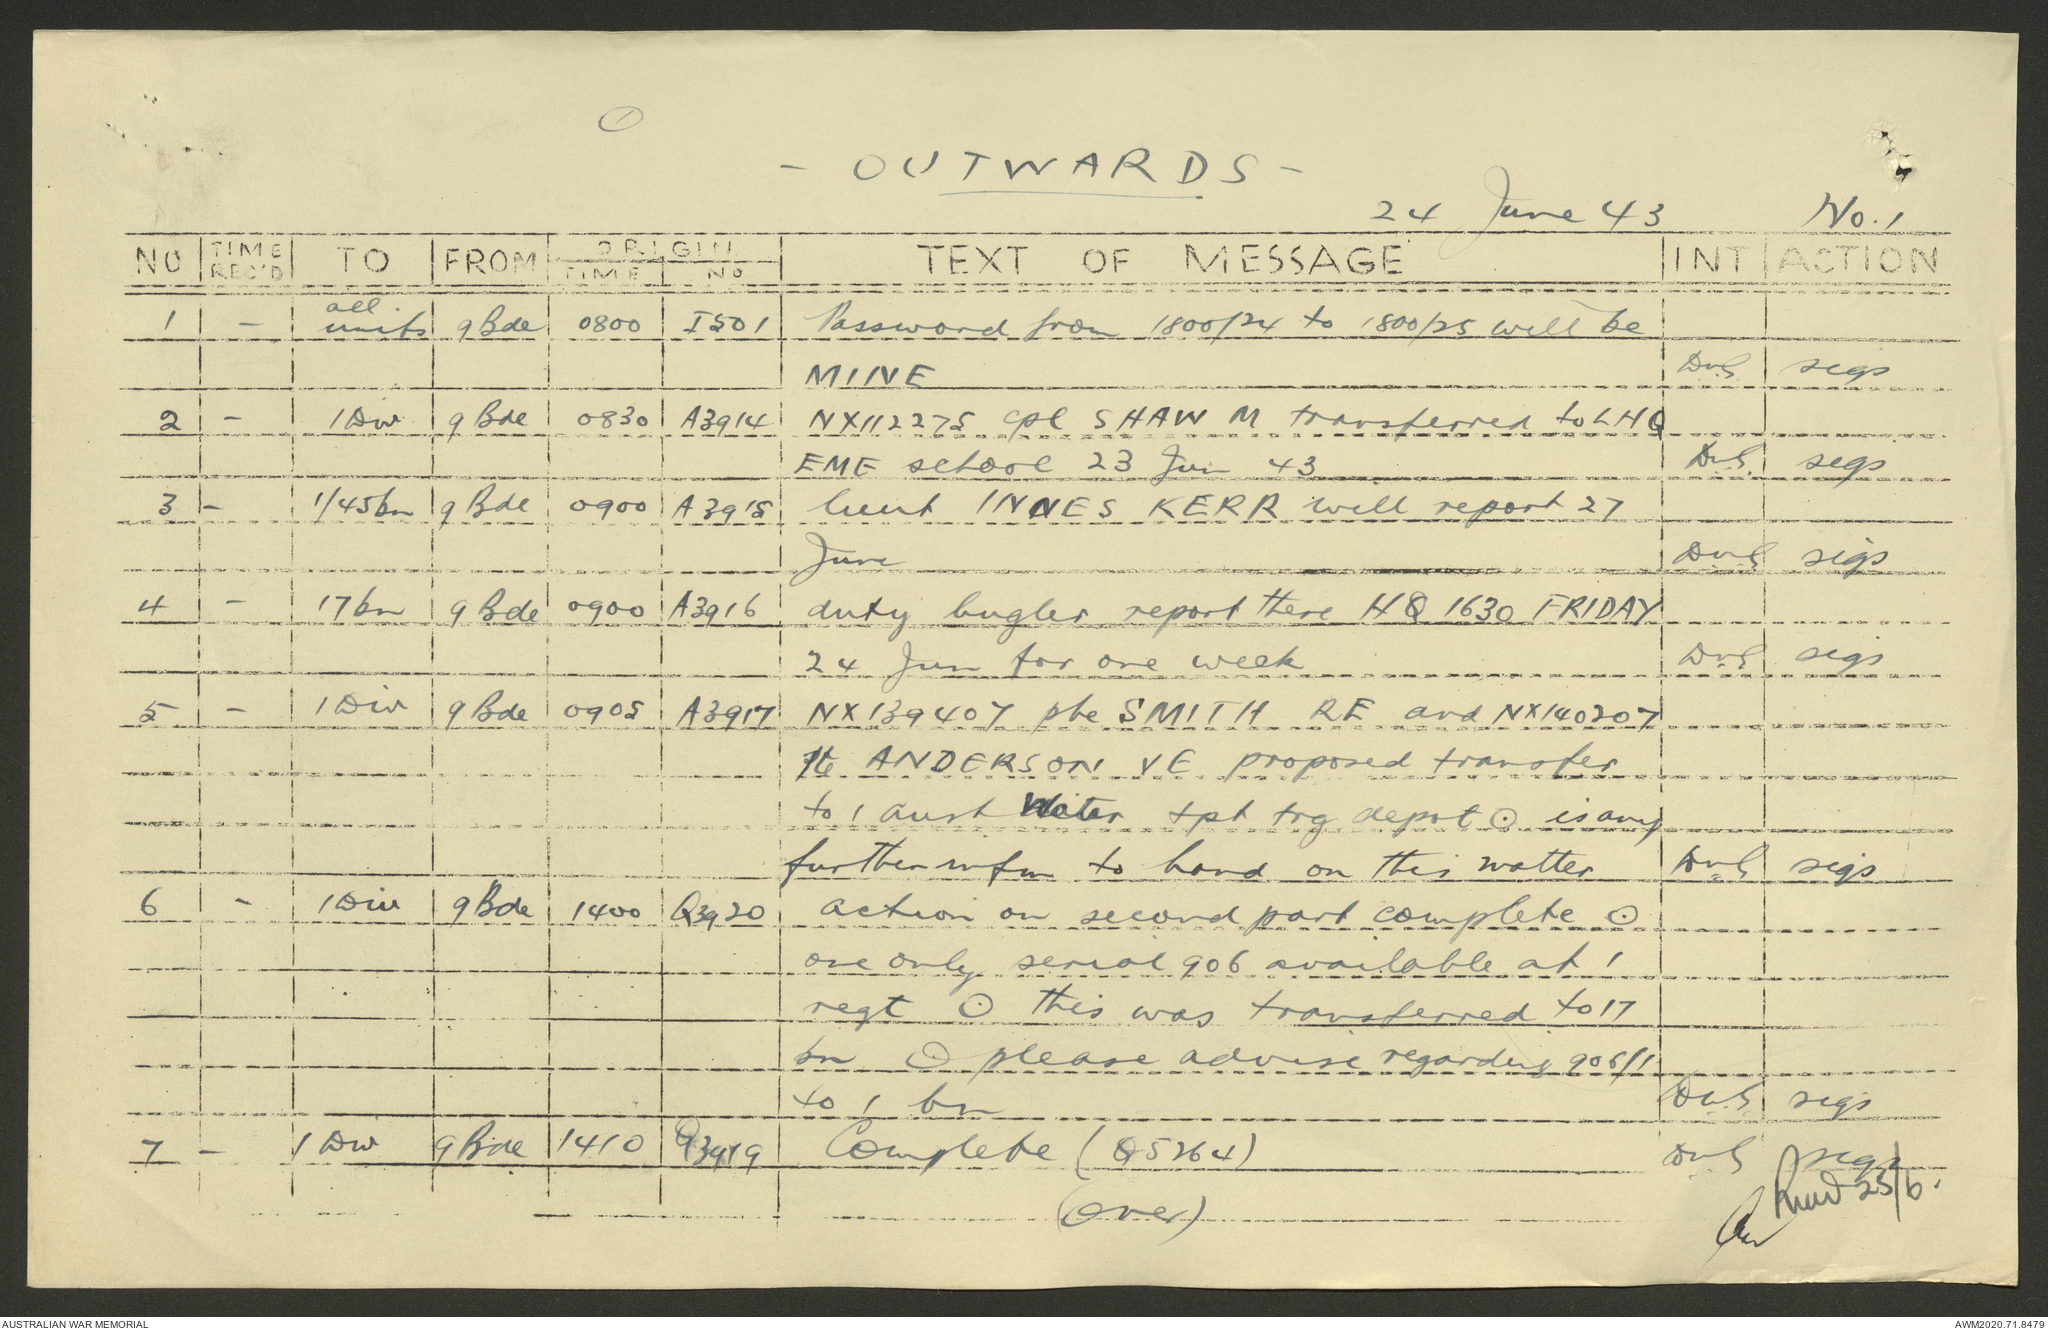 1
- OUTWARDS -
24 June 43 No. 1
NO TIME REC'D TO FROM ORIGIN TIME NO TEXT OF MESSAGE INT ACTION
1 - all units 9 Bde 0800 IS01 Password from 1800/24 to 1800/25 will be
MINE DvS sigs
2 - 1 Div 9 Bde 0830 A3914 NX112275 cpl SHAW M transferred to LHQ
EME school 23 Jun 43 DvS sigs
3 - 1/45 bn 9 Bde 0900 A3915 lieut INNES KERR will report 27
June DvS sigs
4 - 17 bn 9 Bde 0900 A3916 duty bugler report there HQ 1630 FRIDAY
24 Jun for one week DvS sigs
5 - 1 Div 9 Bde 0905 A3917 NX139407 pte SMITH RE and NX140207
pte ANDERSON VE proposed transfer
to 1 aust Water tpt trg depot ⊙ is any
further infm to hand on this matter DvS sigs
6 - 1 Div 9 Bde 1400 Q3920 action on second part complete ⊙
one only serial 906 available at 1
regt ⊙ this was transferred to 17
bn ⊙ please advise regarding 906/1
to 1 bn DvS sigs
7 - 1 Div 9 Bde 1410 Q3919 Complete (Q5264) DvS sigs
(over) 25/6.
AUSTRALIAN WAR MEMORIAL AWM2020.71.8479